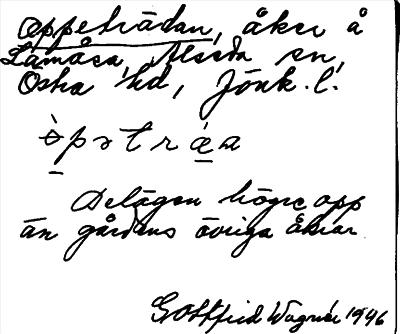 Oppeträdan, åker å
Lamåsa, Alseda sn,
Östra hd, Jönk. l.
òpətrǽa
Belägen högre opp
än gårdens övriga åkrar.
Gottfrid Wagnér 1946